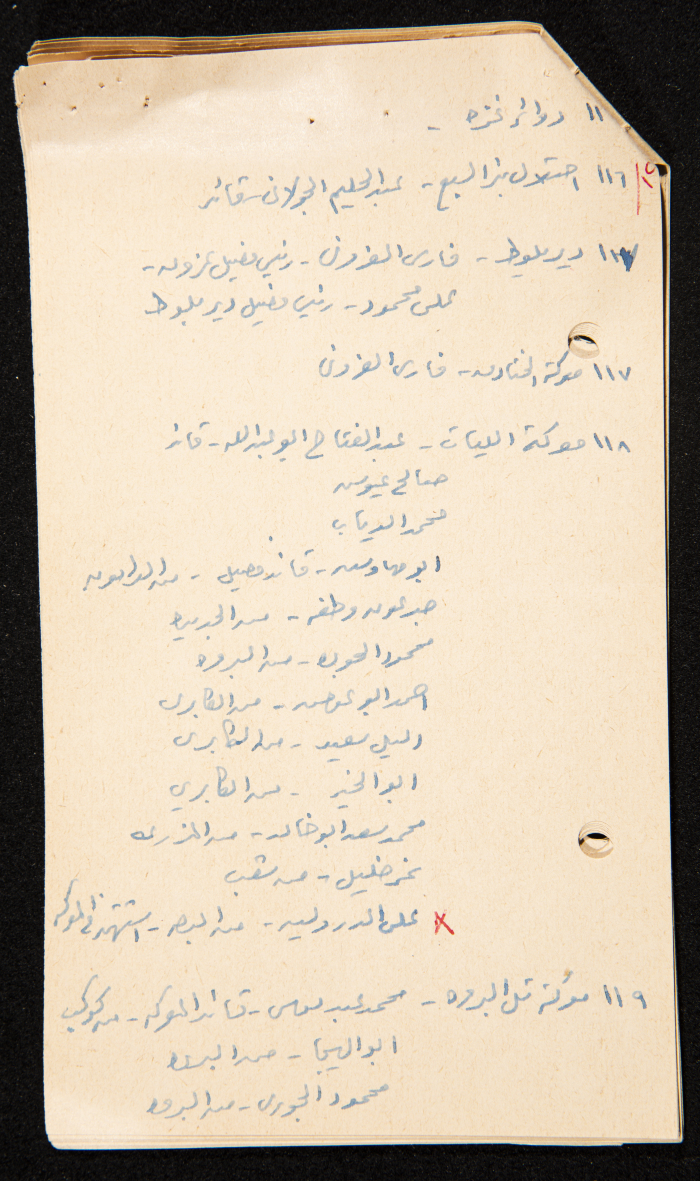 ١١ دوائر غزه -
١١٦ احتلال بئر السبع - عبد الحليم الجولاني - قائد
١٥
١١٧ دير بلوط - فارس العزوني - رئيس فصيل عزون -
علي محمود - رئيس فصيل دير بلوط
١١٧ معركة - فارس العزوني
١١٨ معركة الليات - عبد الفتاح ابو عبدالله - قائد
صالح
محمد الدياب
ابو - قائد فصيل - من الدامون
وطفه - من الجديده
محمود - من البروه
احمد ابو عوض - من الكابري
سعيد - من الكابري
ابو الخير - من الكابري
محمد سعد ابو خالد - من المزرعه
نمر خليل - من شعب
x علي - من البصه - استشهد في المعركه
١١٩ معركة تل البروه - محمد عبد موسى - قائد المعركه - من كوكب
ابو الهيجا - من البروه
محمود الجوري - من البروه